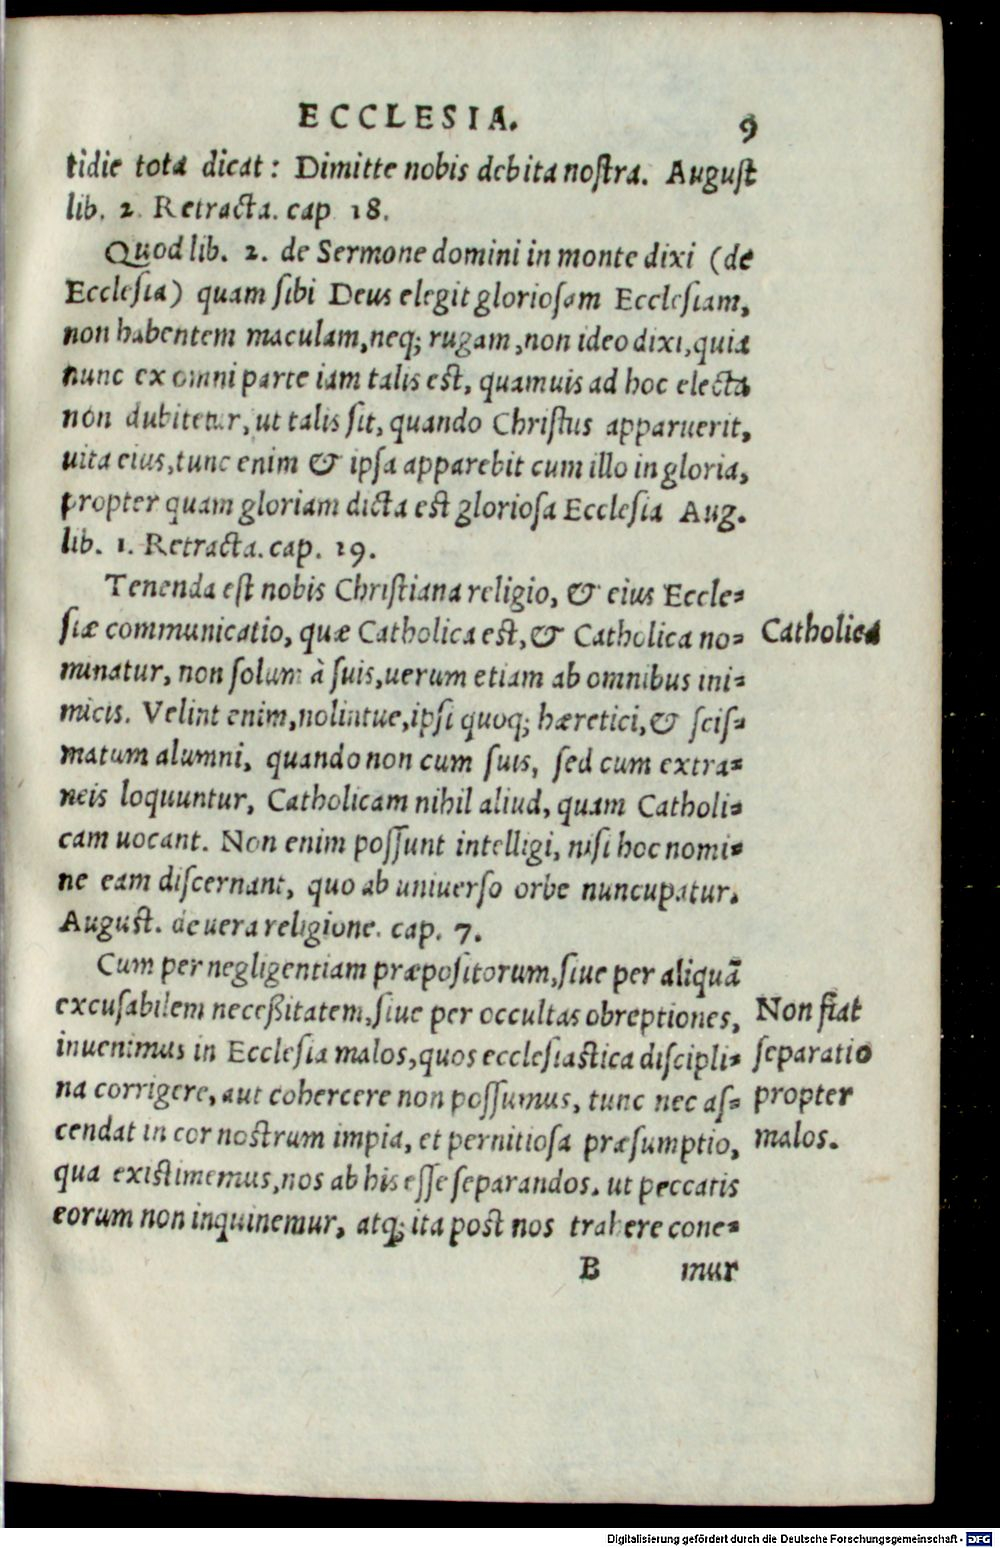 ECCLESIA. 9
tidie tota dicat: Dimitte nobis debita nostra. August
lib. 2. Retracta. cap 18.
Quod lib. 2. de Sermone domini in monte dixi (de
Ecclesia) quam sibi Deus elegit gloriosam Ecclesiam,
non habentem maculam, neq; rugam, non ideo dixi, quia
nunc ex omni parte iam talis est, quamuis ad hoc electa
non dubitetur, ut talis sit, quando Christus apparuerit,
uita eius, tunc enim & ipsa apparebit cum illo in gloria,
propter quam gloriam dicta est gloriosa Ecclesia Aug.
lib. 1. Retracta. cap. 19.
Tenenda est nobis Christiana religio, & eius Eccle-
siæ communicatio, quæ Catholica est, & Catholica no-
Catholica
minatur, non solum à suis, uerum etiam ab omnibus ini-
micis. Velint enim, nolintue, ipsi quoq; hæretici, & scis-
matum alumni, quando non cum suis, sed cum extra-
neis loquuntur, Catholicam nihil aliud, quam Catholi-
cam uocant. Non enim possunt intelligi, nisi hoc nomi-
ne eam discernant, quo ab uniuerso orbe nuncupatur.
August. de uera religione. cap. 7.
Cum per negligentiam præpositorum, siue per aliquā
excusabilem neceßitatem, siue per occultas obreptiones,
inuenimus in Ecclesia malos, quos ecclesiastica discipli-
na corrigere, aut cohercere non possumus, tunc nec as-
cendat in cor nostrum impia, et pernitiosa præsumptio,
qua existimemus, nos ab his esse separandos. ut peccatis
eorum non inquinemur, atq; ita post nos trahere cone-
Non fiat
separatio
propter
malos.
B mur
Digitalisierung gefördert durch die Deutsche Forschungsgemeinschaft - DFG